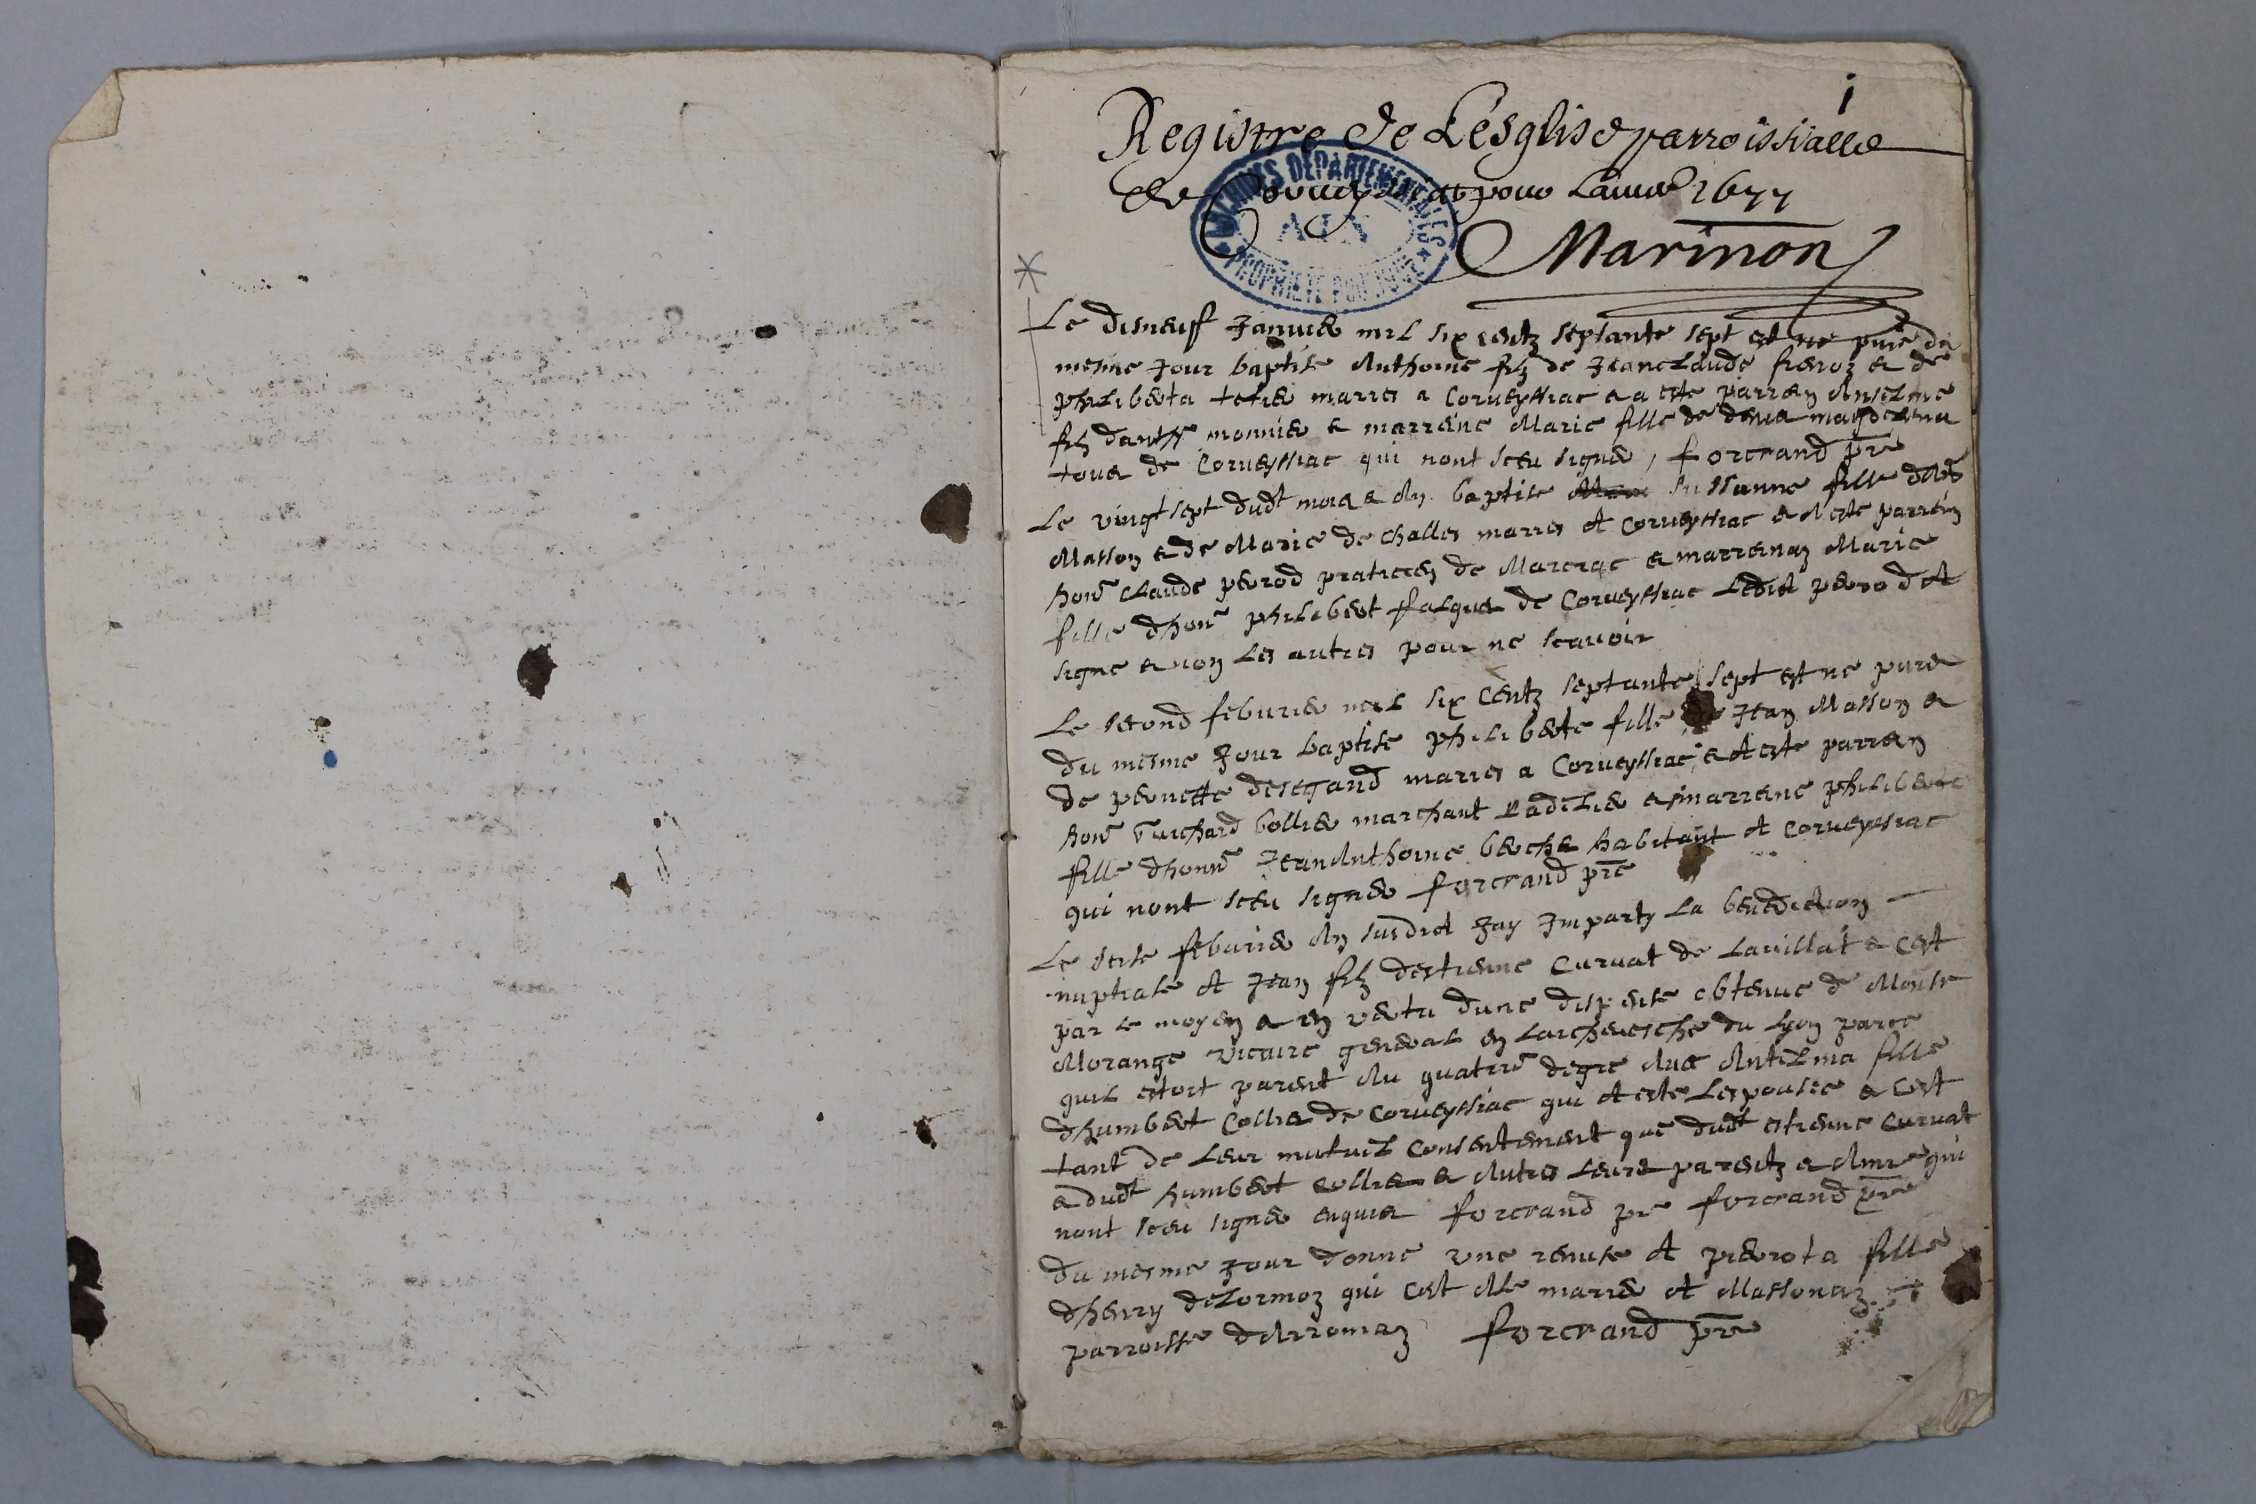 1
Registre de Lesglise parroissialle
de pour Lannee 1677
Marinon
ARCHIVES DEPARTEMENTALES
AIN
PROPRIETE PUBLIQUE
Le disneuf Janvier mil six centz septante sept est ne puis du
mesme Jour baptise Anthoine filz de Jean Claude et de
philiberta marres a Corveyssiac et a este parrein Anselme
filz danth monnier et marreine Marie fille de
tous de Corveyssiac qui nont sceu signer, forcrand pre
Le vingt sept dudt mois et An baptise Sussanne fille
Masson et de Marie de challes marres A Corveyssiac et A este parrein
hon Claude perrod praticien de Marcias et marreinaz Marie
fille dhon philibert falquet de Corveyssiac Ledict perrod A
signe et non Les autres pour ne scavoir
Le second febvrier mil six Centz septante sept est ne puis
du mesme Jour baptise philiberte fille de Jean Masson et
de pernette marres a Corveyssiac et A este parrein
hon burchard Collier marchant et marreine philiberte
fille dhonn Jean Anthoine habitant A Corveyssiac
qui nont sceu signer forcrand pre
Le febvrier An susdict Jay Imparty La benediction
nuptiale A Jean filz destienne Curvat de Lavillat et Cest
par Le moyen et en vertu dune dispense obtenue de Monsr
Morange vicaire general en Larchevesche du Lyon parce
quil estoit parent Au quatre degre Avec Antelma fille
dhumbert Collier de Corveyssiac qui A este Lespousee et Cest
tant de Leur mutuel Consentement que dudt estienne Curvat
et dudt humbert Collier et Autres Leurs parentz et Amis qui
nont sceu signer enquis forcrand pre forcrand pre
du mesme Jour donne une remise A pierrota fille
dhenry delormoz qui Cest Alle marrer A Massonaz
parroisse dArromaz forcrand pre